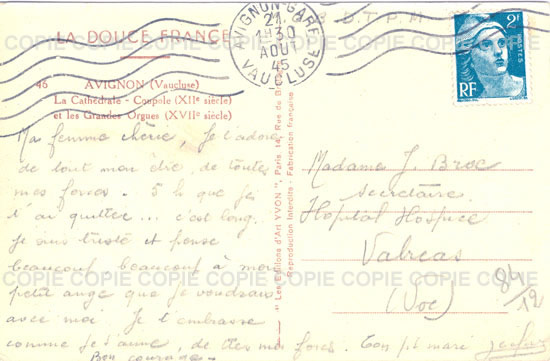 LA DOUCE FRANCE
46 AVIGNON (Vaucluse)
La Cathédrale - Coupole (XIIe siècle)
et les Grandes Orgues (XVIIe siècle)
AVIGNON-GARE
21
1H30
AOUT
45
VAUCLUSE
2F
POSTES
RF
Ma femme chérie, Je t'adore
de tout mon être, de toutes
mes forces. 5 h que je
t'ai quittée... c'est long.
Je suis triste et pense
beaucoup, beaucoup à mon
petit ange que je voudrais
avec moi. Je t'embrasse
comme je t'aime, de ttes mes forces. Ton pt mari
Bon courage
"Les Editions d'Art YVON", Paris 14, Rue de
Reproduction Interdite - Fabrication française
Madame J. Broc
Secrétaire
Hôpital Hospice
Valreas
(Vse)
84/12
COPIE COPIE COPIE COPIE COPIE COPIE COPIE